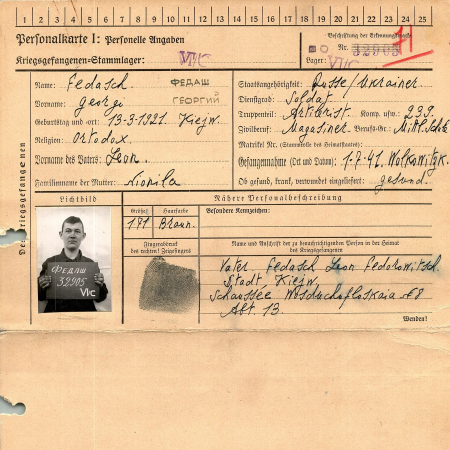 1 2 3 4 5 6 7 8 9 10 11 12 13 14 15 16 17 18 19 20 21 22 23 24 25
Personalkarte I: Personelle Angaben
Kriegsgefangenen-Stammlager: VI/C
Beschriftung der Erkennungsmarke
Nr. 32905
Lager: VI/C
Des Kriegsgefangenen
Name: Fedasch ФЕДАШ
Vorname: Georgi ГЕОРГИЙ
Geburtstag und -ort: 13-3-1921. Kiejw.
Religion: Ortodox.
Vorname des Vaters: Leon.
Familienname der Mutter: Nionila
Staatsangehörigkeit: Russe/Ukrainer
Dienstgrad: Soldat
Truppenteil: Artilerist. Komp. usw.: 299.
Zivilberuf: Magasiner. Berufs-Gr.:
Matrikel Nr. (Stammrolle des Heimatstaates):
Gefangennahme (Ort und Datum): 1-7-41. Wolkowitzk.
Ob gesund, krank, verwundet eingeliefert: gesund.
Lichtbild
Nähere Personalbeschreibung
Größe Haarfarbe Besondere Kennzeichen:
171 Braun.
Fingerabdruck
des rechten Zeigefingers
Name und Anschrift der zu benachrichtigenden Person in der Heimat
des Kriegsgefangenen
ФЕДАШ
32905
VI/C
Vater Fedasch Leon Fedorowitsch.
Stadt Kiejw.
Schaussee
Abt. 13.
Wenden!